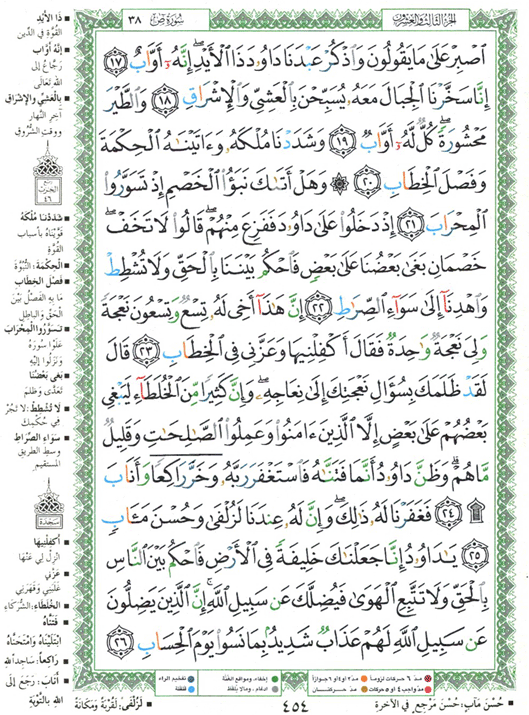 الجزء الثالث والعشرون
سورة ص
٣٨
ٱصۡبِرۡ عَلَىٰ مَا يَقُولُونَ وَٱذۡكُرۡ عَبۡدَنَا دَاوُۥدَ ذَا ٱلۡأَيۡدِۖ إِنَّهُۥٓ أَوَّابٌ ١٧
إِنَّا سَخَّرۡنَا ٱلۡجِبَالَ مَعَهُۥ يُسَبِّحۡنَ بِٱلۡعَشِيِّ وَٱلۡإِشۡرَاقِ ١٨ وَٱلطَّيۡرَ
مَحۡشُورَةٗۖ كُلّٞ لَّهُۥٓ أَوَّابٞ ١٩ وَشَدَدۡنَا مُلۡكَهُۥ وَءَاتَيۡنَٰهُ ٱلۡحِكۡمَةَ
وَفَصۡلَ ٱلۡخِطَابِ ٢٠ ۞ وَهَلۡ أَتَىٰكَ نَبَؤُاْ ٱلۡخَصۡمِ إِذۡ تَسَوَّرُواْ
ٱلۡمِحۡرَابَ ٢١ إِذۡ دَخَلُواْ عَلَىٰ دَاوُۥدَ فَفَزِعَ مِنۡهُمۡۖ قَالُواْ لَا تَخَفۡۖ
خَصۡمَانِ بَغَىٰ بَعۡضُنَا عَلَىٰ بَعۡضٖ فَٱحۡكُم بَيۡنَنَا بِٱلۡحَقِّ وَلَا تُشۡطِطۡ
وَٱهۡدِنَآ إِلَىٰ سَوَآءِ ٱلصِّرَٰطِ ٢٢ إِنَّ هَٰذَآ أَخِي لَهُۥ تِسۡعٞ وَتِسۡعُونَ نَعۡجَةٗ
وَلِيَ نَعۡجَةٞ وَٰحِدَةٞ فَقَالَ أَكۡفِلۡنِيهَا وَعَزَّنِي فِي ٱلۡخِطَابِ ٢٣ قَالَ
لَقَدۡ ظَلَمَكَ بِسُؤَالِ نَعۡجَتِكَ إِلَىٰ نِعَاجِهِۦۖ وَإِنَّ كَثِيرٗا مِّنَ ٱلۡخُلَطَآءِ لَيَبۡغِي
بَعۡضُهُمۡ عَلَىٰ بَعۡضٍ إِلَّا ٱلَّذِينَ ءَامَنُواْ وَعَمِلُواْ ٱلصَّٰلِحَٰتِ وَقَلِيلٞ
مَّا هُمۡۗ وَظَنَّ دَاوُۥدُ أَنَّمَا فَتَنَّٰهُ فَٱسۡتَغۡفَرَ رَبَّهُۥ وَخَرَّۤ رَاكِعٗاۤ وَأَنَابَ
۩ ٢٤ فَغَفَرۡنَا لَهُۥ ذَٰلِكَۖ وَإِنَّ لَهُۥ عِندَنَا لَزُلۡفَىٰ وَحُسۡنَ مَـَٔابٖ
٢٥ يَٰدَاوُۥدُ إِنَّا جَعَلۡنَٰكَ خَلِيفَةٗ فِي ٱلۡأَرۡضِ فَٱحۡكُم بَيۡنَ ٱلنَّاسِ
بِٱلۡحَقِّ وَلَا تَتَّبِعِ ٱلۡهَوَىٰ فَيُضِلَّكَ عَن سَبِيلِ ٱللَّهِۚ إِنَّ ٱلَّذِينَ يَضِلُّونَ
عَن سَبِيلِ ٱللَّهِ لَهُمۡ عَذَابٞ شَدِيدُۢ بِمَا نَسُواْ يَوۡمَ ٱلۡحِسَابِ ٢٦
ذَا الأَيْدِ
القُوَّةِ في الدِّين
إِنَّهُ أَوَّابٌ
رَجَّاعٌ إلى
الله تَعَالى
بِالْعَشِيِّ وَالإِشْرَاقِ
آخِرِ النَّهار
ووقتِ الشُّروق
الحزب
٤٦
شَدَدْنَا مُلْكَهُ
قوَّيْناه بأسباب
القُوَّة
الْحِكْمَةَ: النُّبُوَّة
فَصْلَ الْخِطَابِ
ما به الفَصْلُ بَيْن
الحقِّ والباطل
تَسَوَّرُوا الْمِحْرَابَ
عَلَوْا سُورَهُ
ونَزلوا إليه
بَغَى بَعْضُنَا
تَعَدَّى وظَلَم
لَا تُشْطِطْ: لا تَجُرْ
في حُكْمِك
سَوَاءِ الصِّرَاطِ
وسط الطريق
المستقيم
سجدة
أَكْفِلْنِيهَا
انْزِلْ لِي عَنْها
عَزَّنِي
غَلَبَنِي وقَهَرَنِي
الْخُلَطَاءِ: الشُّرَكاء
فَتَنَّاهُ
ابْتَلَيْناه وامْتَحَنَّاه
رَاكِعًا: ساجداً لله
أَنَابَ: رَجَعَ إلى
الله بالتَّوْبَة
لَزُلْفَى: لَقُرْبَةً ومَكانَة
حُسْنَ مَآبٍ: حُسْنَ مَرْجِعٍ في الآخرة
مدّ ٦ حركات لزوماً
مدّ ٢ أو ٤ أو ٦ جوازاً
مدّ واجب ٤ أو ٥ حركات
مدّ حركتان
إخفاء، ومواقع الغُنَّة
ادغام، ومالا يُلفظ
تفخيم الراء
قلقلة
٤٥٤